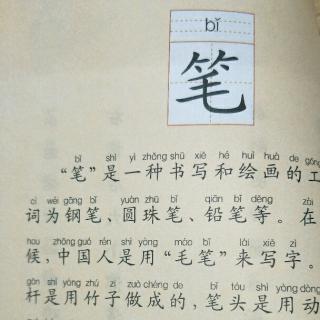 bǐ
笔
bǐ shì yì zhǒng shū xiě hé huì huà de gōng
“笔”是一种书写和绘画的工
cí wéi gāng bǐ qiān bǐ děng zài
词为钢笔、圆珠笔、铅笔等。在
hou zhōng guó rén shì yòng máo bǐ lái xiě zì
候，中国人是用“毛笔”来写字。
gǎn shì yòng zhú zi zuò chéng de bǐ tóu shì yòng dòng
杆是用竹子做成的，笔头是用动